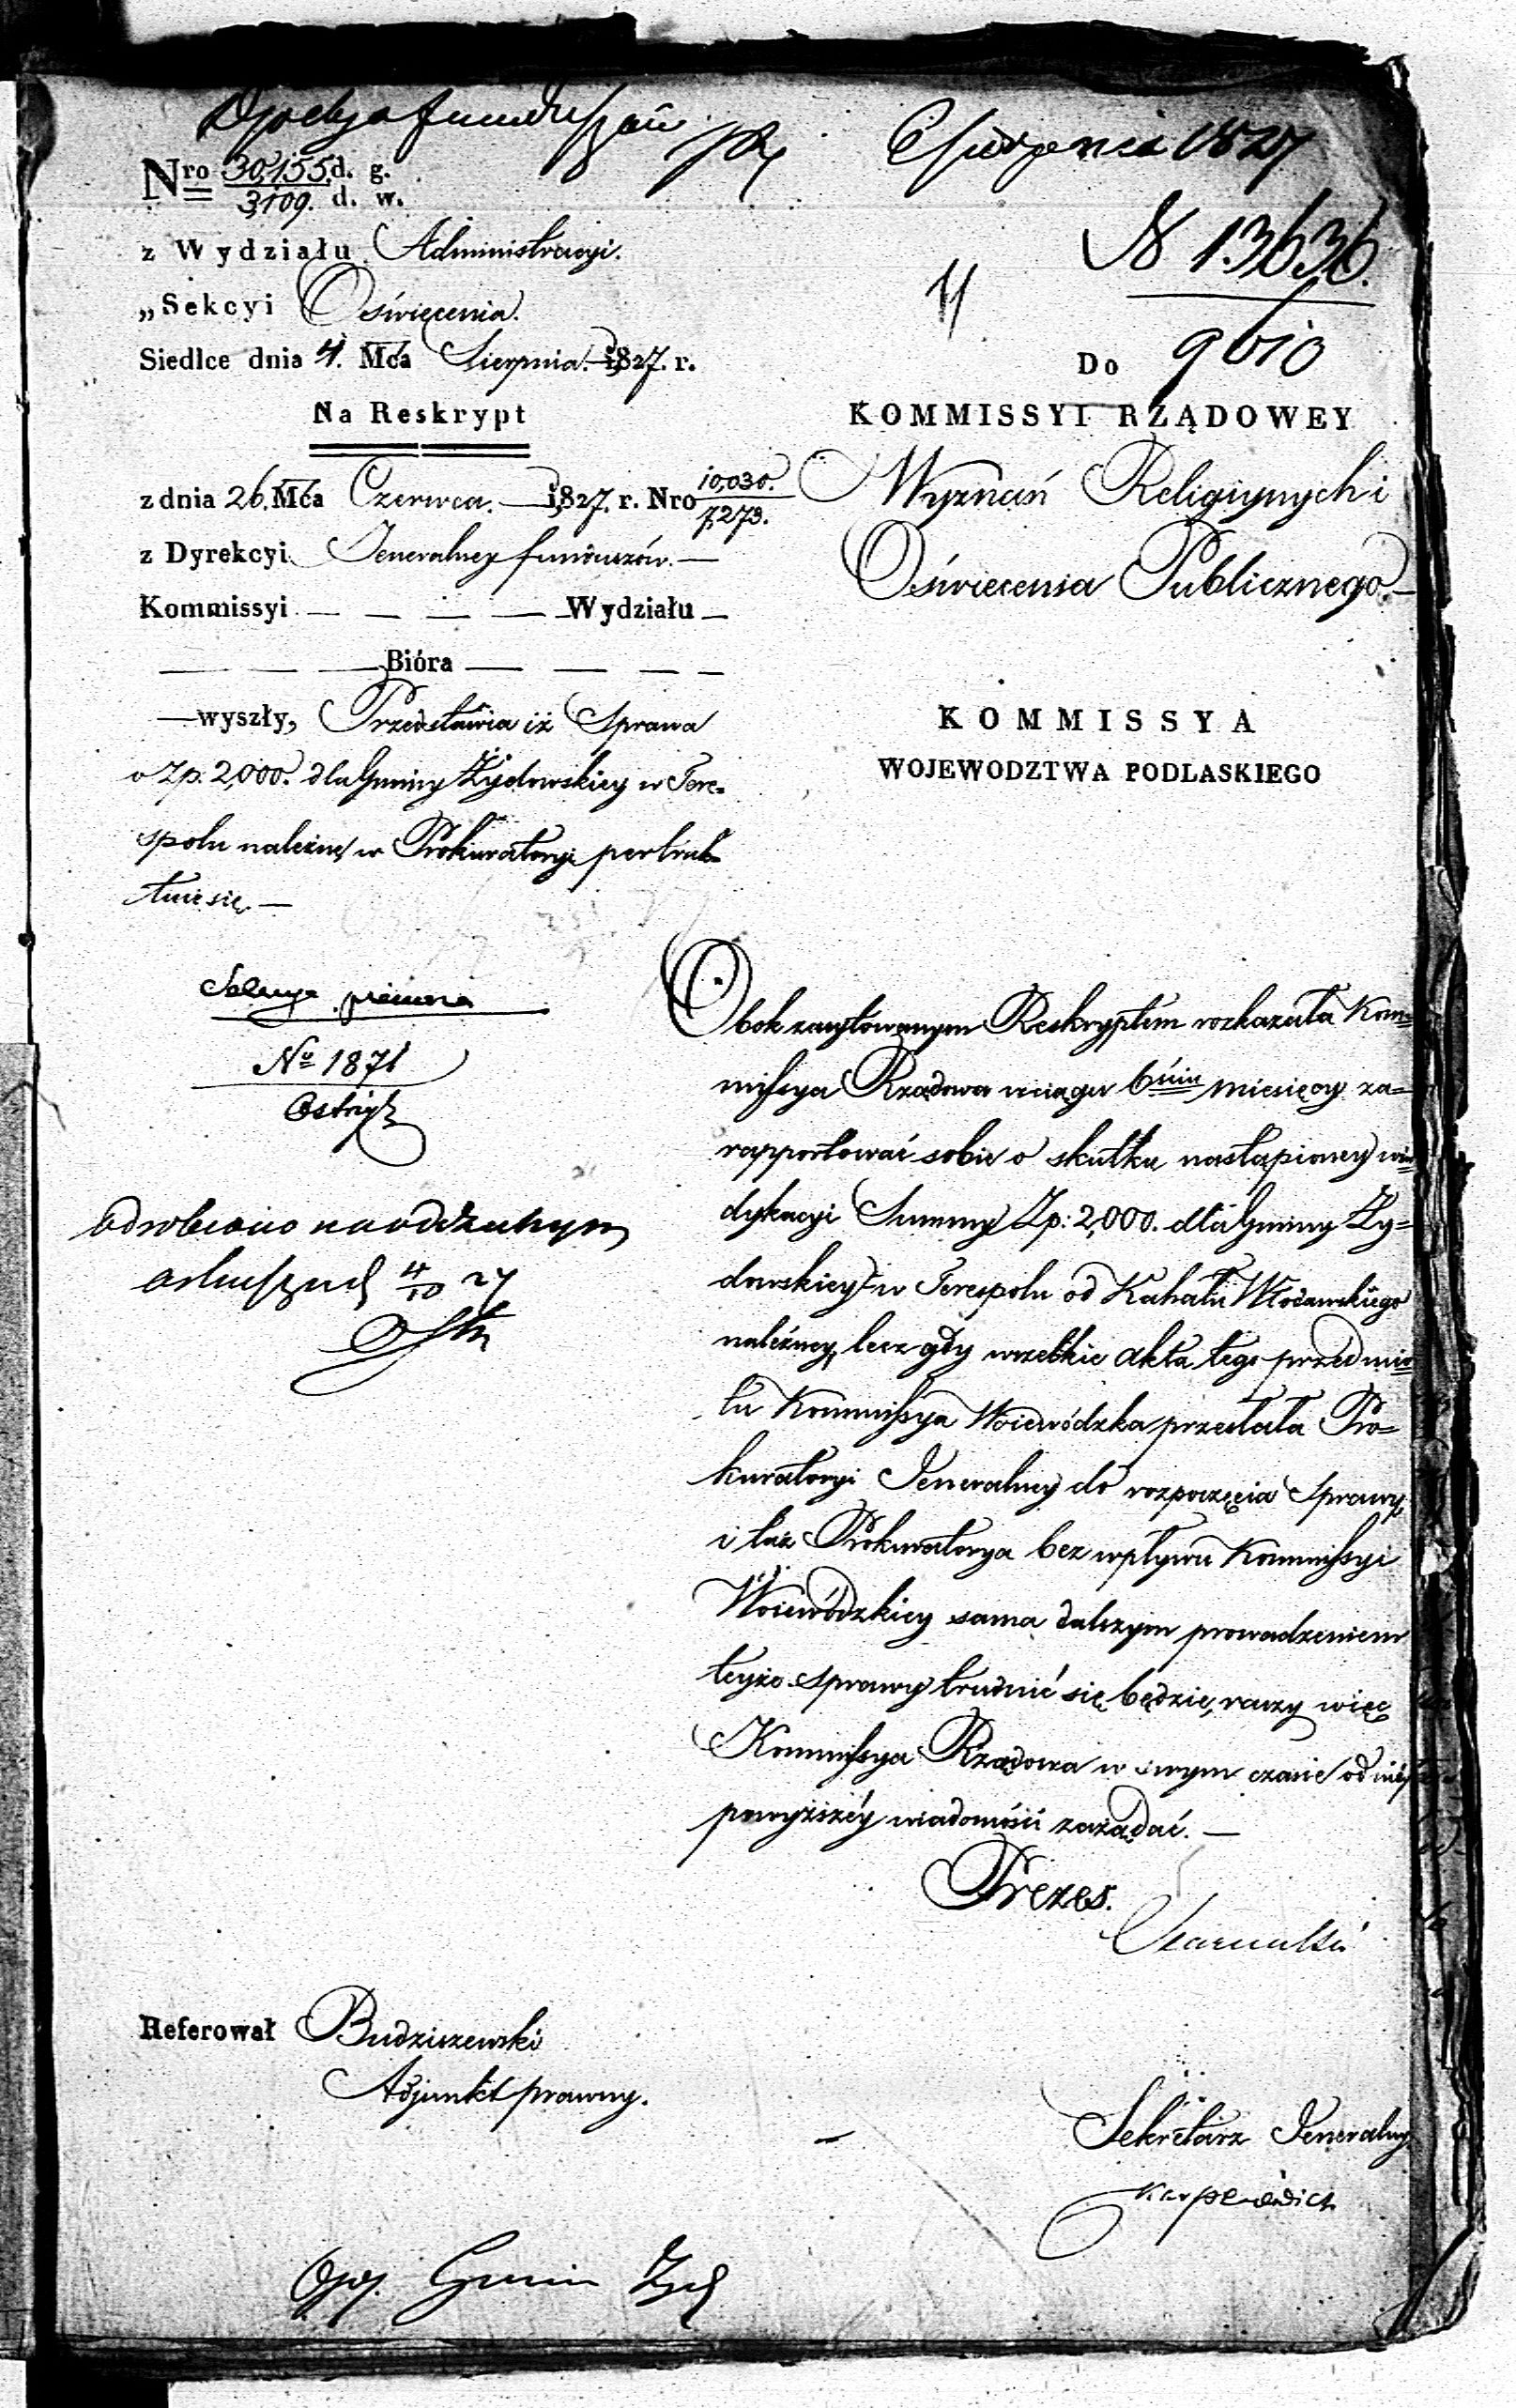 Sierpnia 1827
Nro 30,155. d. g.
3,109. d. w.
z Wydziału Administracyi.
„Sekcyi Oświecenia.
Siedlce dnia 4. Mca Sierpnia. 1827. r.
Na Reskrypt
z dnia 26. Mca Czerwca. — 1827. r. Nro 10,030.
7,273.
z Dyrekcyi Jeneralney funduszów. —
Kommissyi — — — — Wydziału —
— — — Bióra — — — —
— wyszły, Przedstawia iż Sprawa
o Zp. 2,000. dla Gminy Żydowskiey w Tere-
spolu należne w Prokuratoryi pertrak-
tuie się. —
№ 13636.
9610
Do
KOMMISSYI RZĄDOWEY
Wyznań Religiynych i
Oświecenia Publicznego. —
KOMMISSYA
WOJEWODZTWA PODLASKIEGO
No 1871
odrobiono na oddzielnym
arkuszu 4/10 27
Obok zacytowanym Reskryptem rozkazała Kom=
missya Rządowa wciągu 6ciu miesięcy za=
rapportować sobie o skutku nastąpioney win=
dykacyi Summy Zp: 2,000. dla Gminy Ży=
dowskiey w Terespolu od Kahału Włodawskiego
należney, lecz gdy wszelkie akta tego przedmio=
tu Kommissya Woiewódzka przesłała Pro=
kuratoryi Jeneralney do rozpoczęcia Sprawy,
i taż Prokuratorya bez wpływu Kommissyi
Woiewódzkiey sama dalszym prowadzeniem
teyże Sprawy trudnić się będzie, raczy więc
Kommissya Rządowa w swym czasie od nieyże
powyższéy wiadomości zażądać. —
Prezes.
Referował Budziszewski
Adjunkt prawny.
Sekretarz Jeneralny
Karpowicz
Gmin Żyd